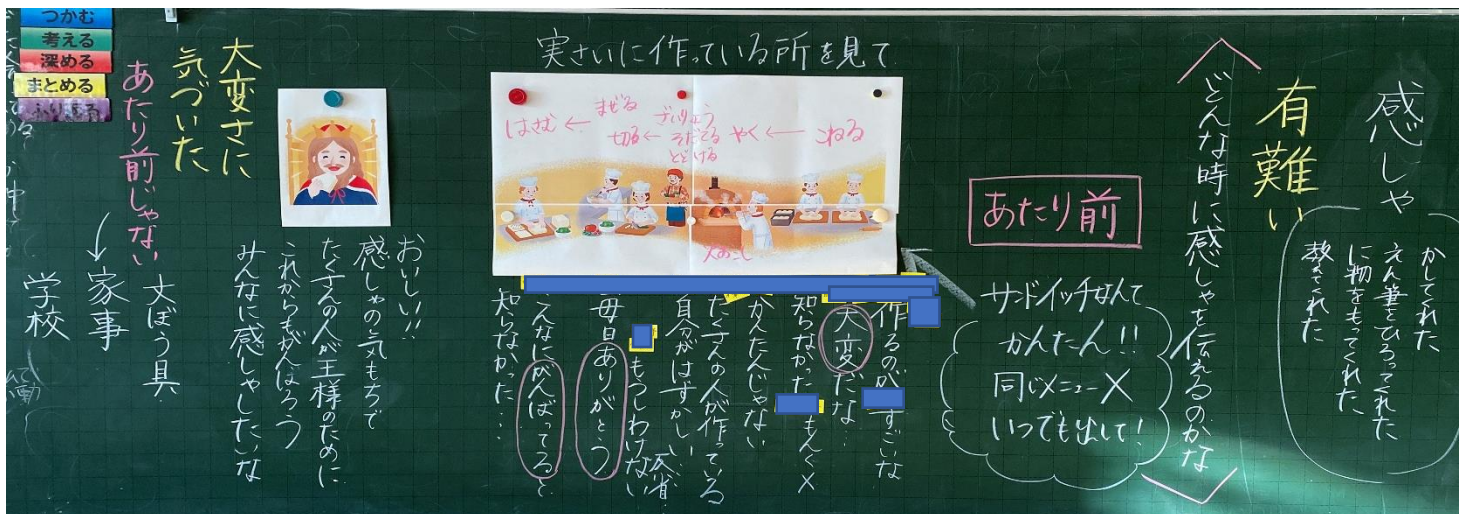 感しゃ
かしてくれた
えん筆をひろってくれた
に物をもってくれた
教えてくれた
有難い
どんな時に感しゃを伝えるのかな
あたり前
サンドイッチなんて
かんたん!!
同じメニューX
いつでも出して!
実さいに作っている所を見て
こねる
やく
ざいりょう
そだてる
とどける
まぜる
切る
はさむ
火おこし
作るのが すごいな
大変だな…
知らなかった もんくX
かんたんじゃない
たくさんの人が作っている
自分がはずかしい 反省
もうしわけない
毎日ありがとう
こんなにがんばってると
知らなかった…
おいしい!!
感しゃの気もちで
たくさんの人が王様のために
これからもがんばろう
みんなに感しゃしたいな
大変さに
気づいた
あたり前じゃない
文ぼう具
家事
学校
つかむ
考える
深める
まとめる